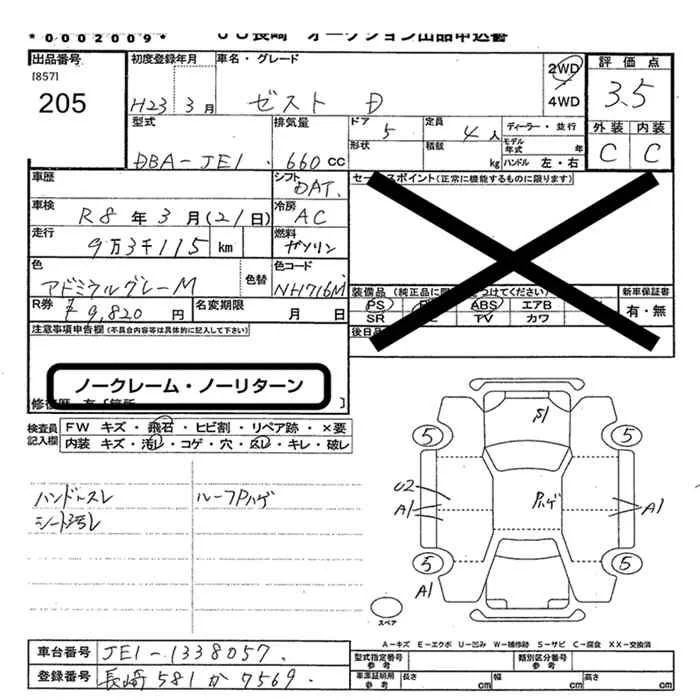 *0002009*
JU長崎 オークション出品申込書
出品番号
[857]
205
初度登録年月
H23 3 月
車名・グレード
ゼスト D
2WD
4WD
評価点
3.5
外装 内装
C C
型式
DBA-JE1
排気量
660 CC
ドア
5
形状
定員
4 人
積載
kg
ディーラー・並行
モデル年式 年
ハンドル 左・右
車歴
シフト
DAT.
車検
R8 年 3 月 (21 日)
冷房
AC
走行
9万3千115 km
燃料
ガソリン
色
アドミラルグレーM
色替
色コード
NH716M
R券
¥9,820 円
名変期限
月 日
セールスポイント(正常に機能するものに限ります)
装備品 (純正品に限
つけてください)
PS
ABS エアB
SR
TV カワ
新車保証書
有・無
後日品
注意事項申告欄(不具合内容等は具体的に記入して下さい)
ノークレーム・ノーリターン
修復歴 有 [箇所 ]
検査員記入欄
FW キズ・飛石・ヒビ割・リペア跡・×要
内装 キズ・汚レ・コゲ・穴・スレ・キレ・破レ
ハンドルスレ
ルーフPハゲ
S1
5 5
U2
A1
Pハゲ
A1
5 5
A1
スペア
A-キズ E-エクボ U-凹み W-補修跡 S-サビ C-腐食 XX-交換済
車台番号
JE1-1338057.
登録番号
長崎 581 か 7569.
型式指定番号
参考
類別区分番号
参考
車庫証明用
参考
長さ cm
幅 cm
高さ cm